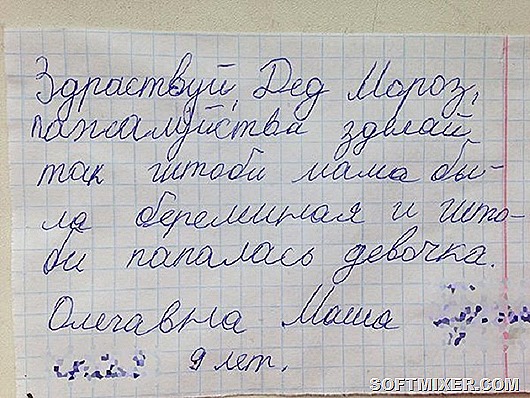 Здраствуй, Дед Мороз,
пажалуйства зделай
так штоби мама бы-
ла береминая и што-
би папалась девочка.
Олегавна Маша
9 лет.
SOFTMIXER.COM